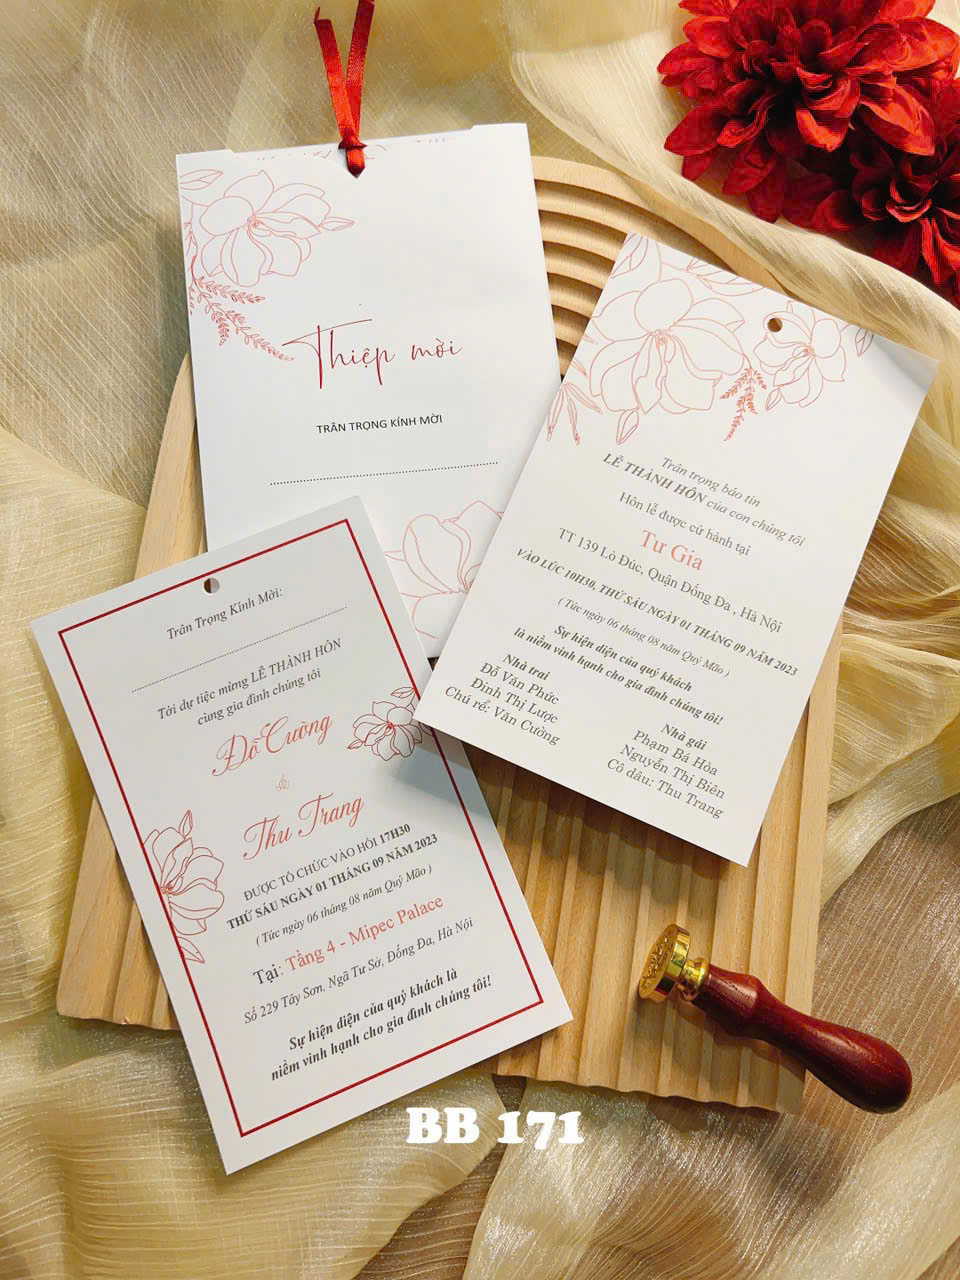 Thiệp mời
TRÂN TRỌNG KÍNH MỜI
Trân trọng báo tin
LỄ THÀNH HÔN của con chúng tôi
Hôn lễ được cử hành tại
Tư Gia
TT 139 Lò Đúc, Quận Đống Đa , Hà Nội
VÀO LÚC 10H30, THỨ SÁU NGÀY 01 THÁNG 09 NĂM 2023
( Tức ngày 06 tháng 08 năm Quý Mão )
Sự hiện diện của quý khách
là niềm vinh hạnh cho gia đình chúng tôi!
Nhà trai
Đỗ Văn Phức
Đinh Thị Lược
Chú rể: Văn Cường
Nhà gái
Phạm Bá Hòa
Nguyễn Thị Biên
Cô dâu: Thu Trang
Trân Trọng Kính Mời:
Tới dự tiệc mừng LỄ THÀNH HÔN
cùng gia đình chúng tôi
Đỗ Cường
&
Thu Trang
ĐƯỢC TỔ CHỨC VÀO HỒI 17H30
THỨ SÁU NGÀY 01 THÁNG 09 NĂM 2023
( Tức ngày 06 tháng 08 năm Quý Mão )
Tại: Tầng 4 - Mipec Palace
Số 229 Tây Sơn, Ngã Tư Sở, Đống Đa, Hà Nội
Sự hiện diện của quý khách là
niềm vinh hạnh cho gia đình chúng tôi!
BB 171